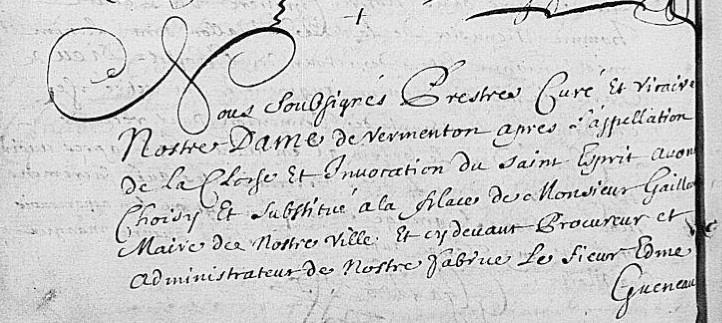 Nous Soubsignés Prestres Curé Et Vicaire
Nostre Dame de Vermenton apres l'appellation
de la Cloche Et Invocation du saint Esprit avons
Choisy Et substitué a la place de Monsieur Gaillo
Maire de Nostre Ville Et cy devant Procureur et
administrateur de Nostre fabrue Le sieur Edme
Gueneau